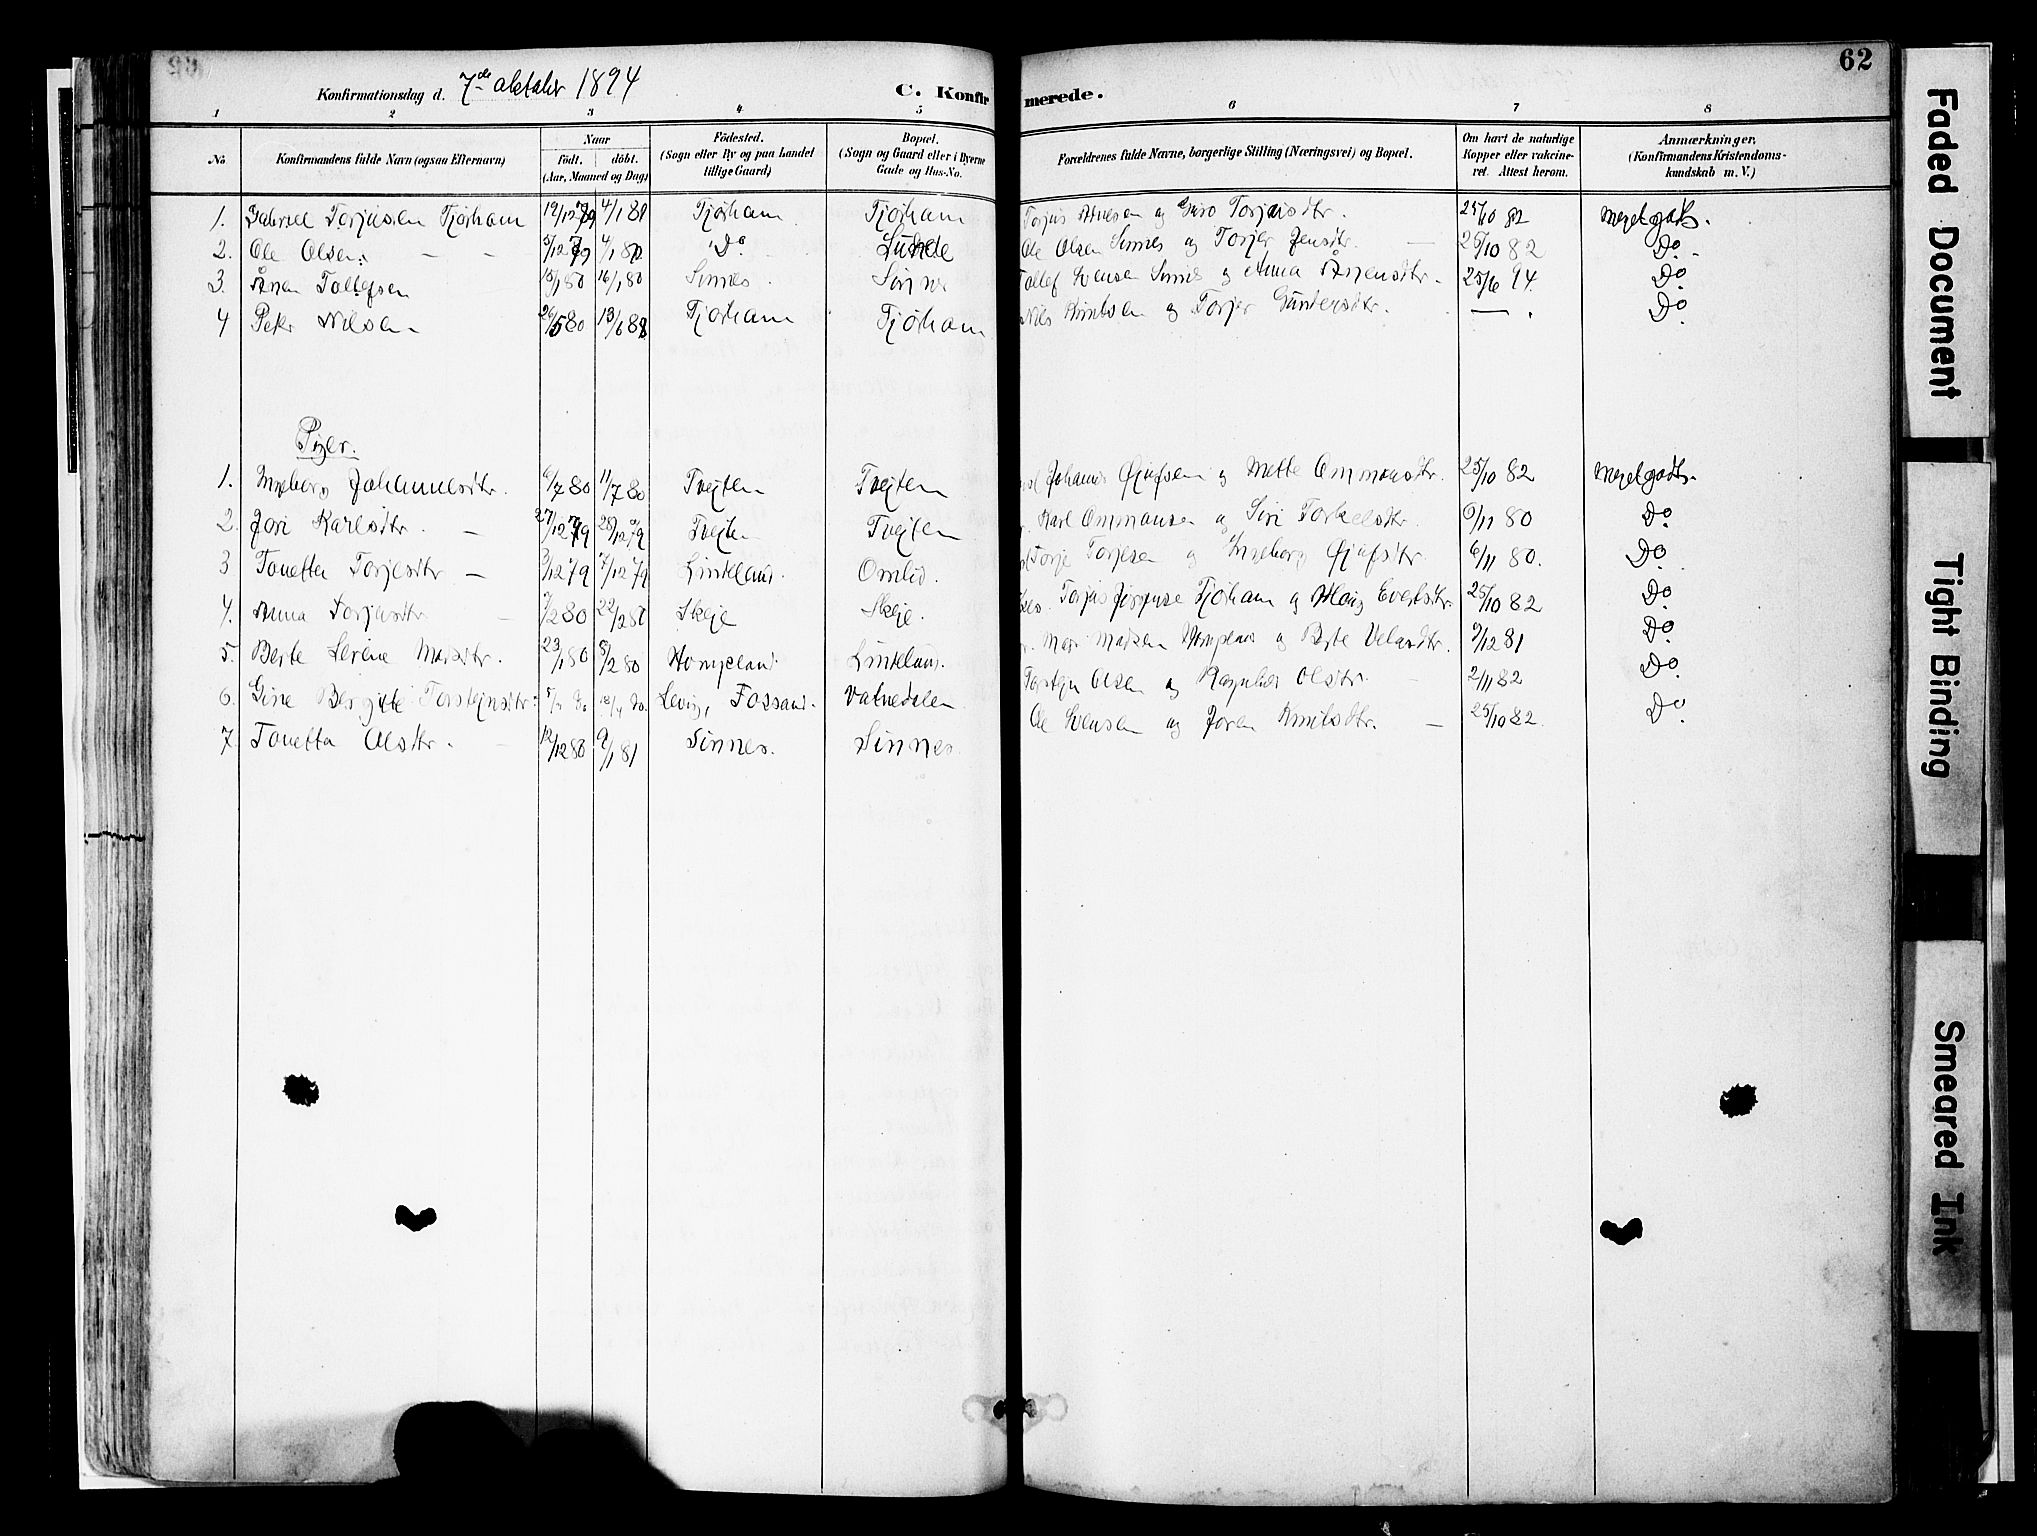 62
Konfirmationsdag d. 7de oktober 1894
C. Konfirmerede.
1 2 3 4 5 6 7 8
No. Konfirmandens fulde Navn (ogsaa Efternavn) Naar födt. döbt. (Aar, Maaned og Dag) Födested. (Sogn eller By og paa Landet tillige Gaard) Bopæl. (Sogn og Gaard eller i Byerne Gade og Hus-No. Forældrenes fulde Navne, borgerlige Stilling (Næringsvei) og Bopæl. Om havt de naturlige Kopper eller vakcineret. Attest herom. Anmærkninger. (Konfirmandens Kristendomskundskab m. V.)
1. Gabriel Torjusen Tjørham 19/12 79 4/1 80 Tjørham Tjørham Torjus Torjusdtr. 25/10 82 Megetgodt.
2. Ole Olsen 5/12 79 4/1 80 Do Lunde Ole Olsen Sinnes og Torjer Jensdtr. 25/10 82 Do.
3. Ånen Tollefsen 15/1 80 16/1 80 Sinnes Sinnes Tollef Svensen Sinnes og Anna Ånensdtr. 25/6 94. Do
4 Peter Nilsen 26/5 80 13/6 80 Tjørham Tjørham Nils Knutsen og Torjer Gundersdtr. — Do.
Piger.
1. Ingeborg Johannesdtr. 6/7 80 11/7 80 Tvejten Tvejten Johannes Øjufsen og Mette Ommunsdtr. 25/10 82 Megetgodt.
2. Jori Karlsdtr. 27/12 79 28/12 79 Tvejten Tvejten Karl Ommunsen og Siri Torkelsdtr. 6/11 80 Do
3 Tonetta Torjesdtr 3/12 79 7/12 79 Linkland. Omlid. Torje Torjesen og Ingeborg Øjufsdtr. 6/11 80. Do
4. Anna Torjusdtr 7/2 80 22/2 80 Skeje Skeje. Torjus Tjørham og Evertsdtr. 25/10 82 Do
5. Berte Serine Masdtr. 23/1 80 8/2 80 Hompland. Linkland. Madsen Hompland og Berte Velandtr. 9/12 81 Do
6. Gine Bergitte Torstejnsdtr. Fossand. Vatnedalen Torstejn Olsen og Ragnhild Olsdtr. 2/11 82. Do.
7. Tonetta Olsdtr. 12/12 80 9/1 81 Sinnes. Sinnes. Ole Svensen og Joren Knutsdtr. — 25/10 82. Do.
Faded Document
Tight Binding
Smeared Ink